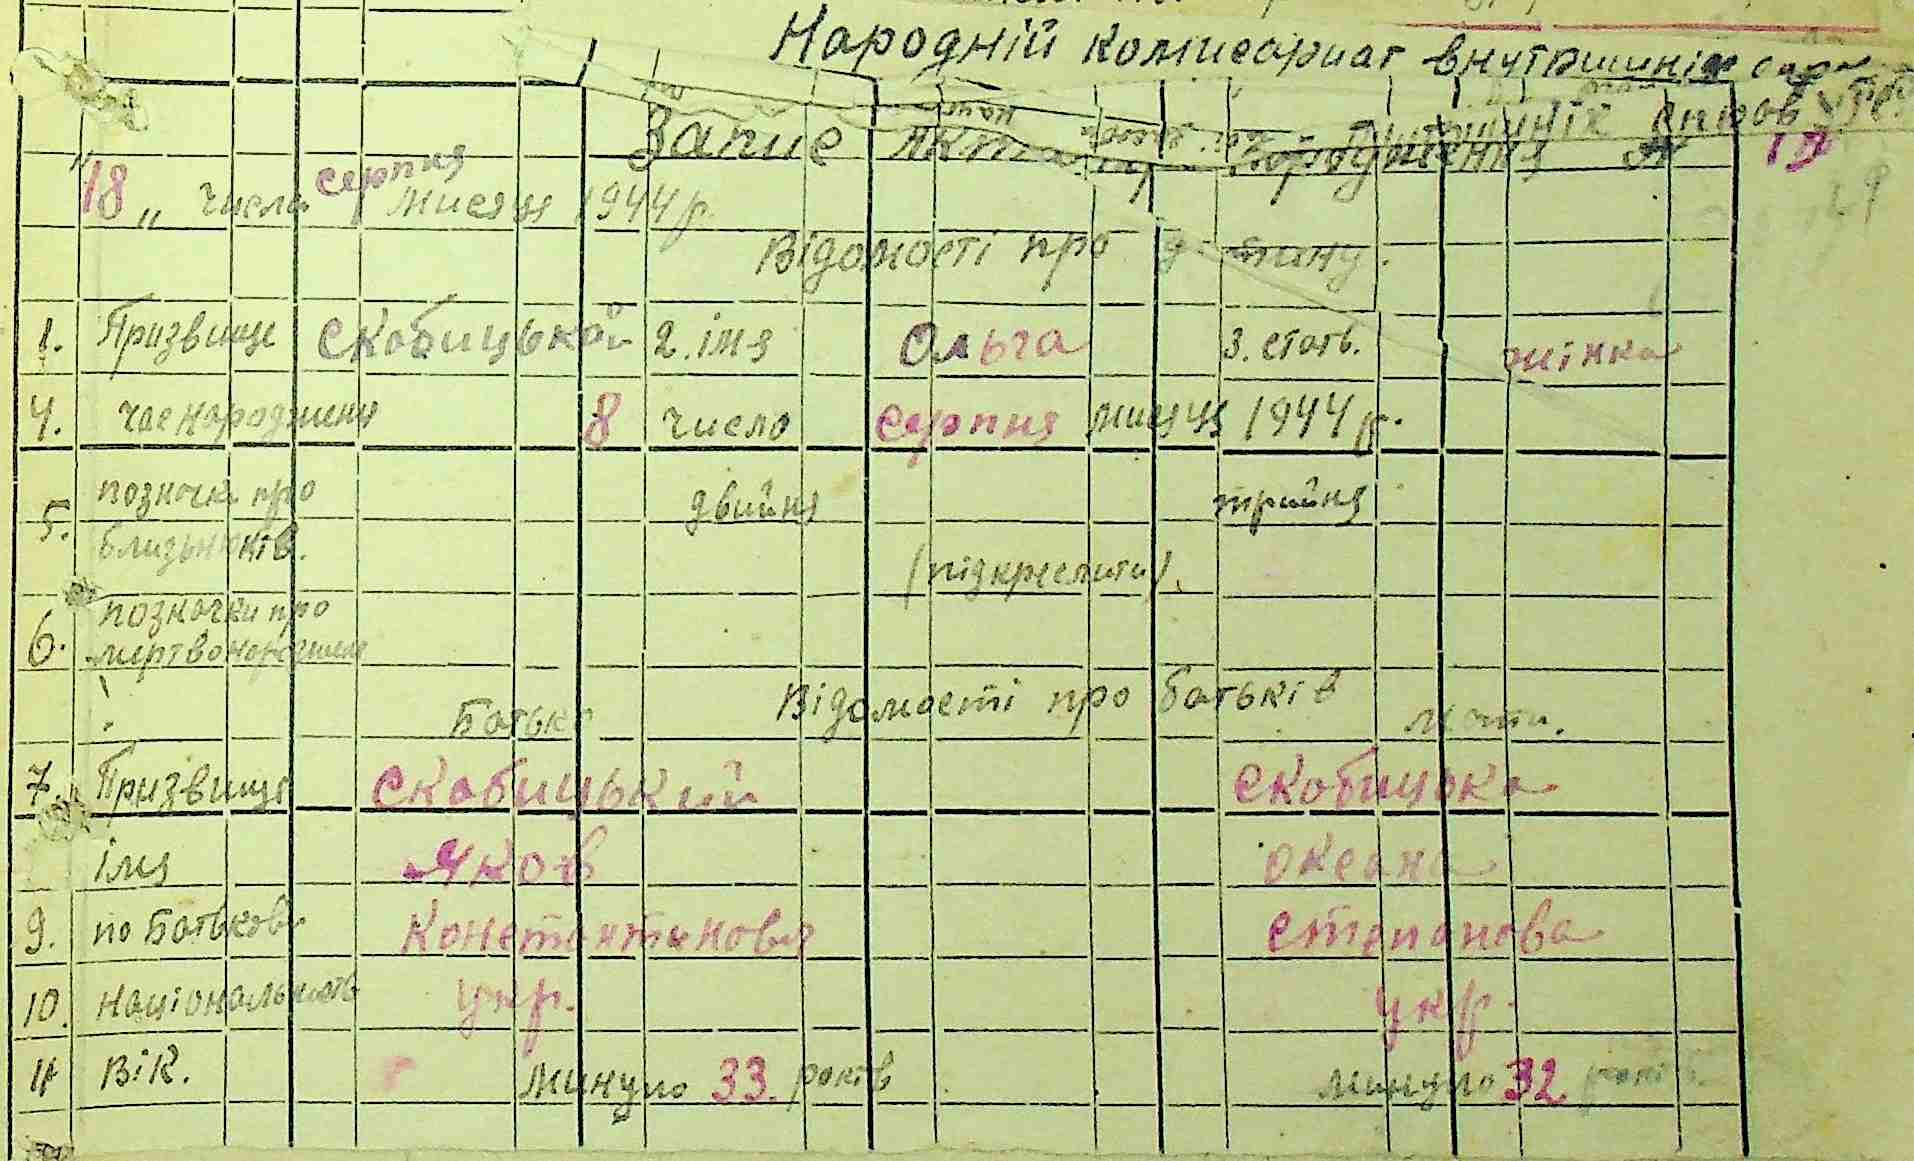 Народній комисариат внутришніх
Запис народження № 19
"18„ число серпня мисяця 1944 р.
Відомості про дитину.
1. Призвище Скобицькой 2. імя Ольга 3. стать. жінка
4. час народження 8 число серпня мисяця 1944 р.
5. позночки про близьнюків. двийня трийня
(підкреслити).
6. позночки про мертвонароджене
Відомості про батьків
Батько мати.
7. Призвище Скобицький Скобицька
імя Яков Оксана
9. по Батькови Константинови Степанова
10. національність укр. укр.
11 вік. минуло 33. років минуло 32 років